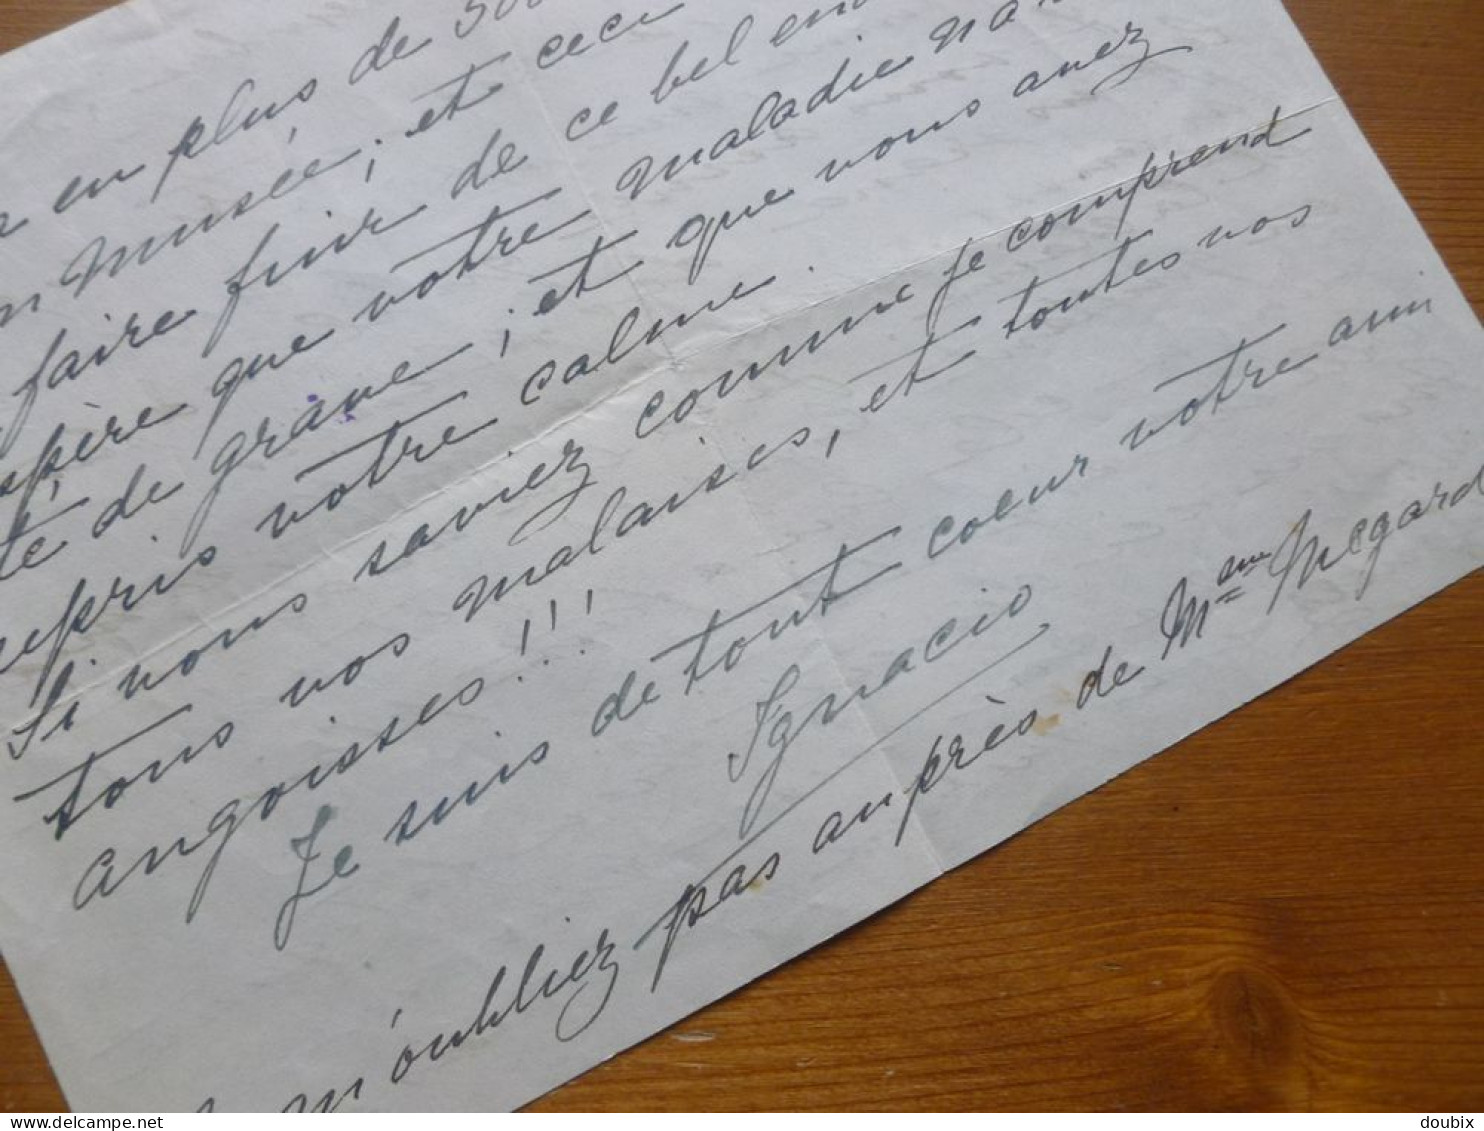 en plus de 500
musée ; et ceci
faire fuir de ce bel
que votre maladie n'a
de grave ; et que vous avez
repris votre calme.
Si vous saviez comme je comprend
tous vos malaises, et toutes vos
angoisses !!!
Je suis de tout coeur votre ami
Ignacio
m'oubliez pas auprès de Mme Megard
doubix